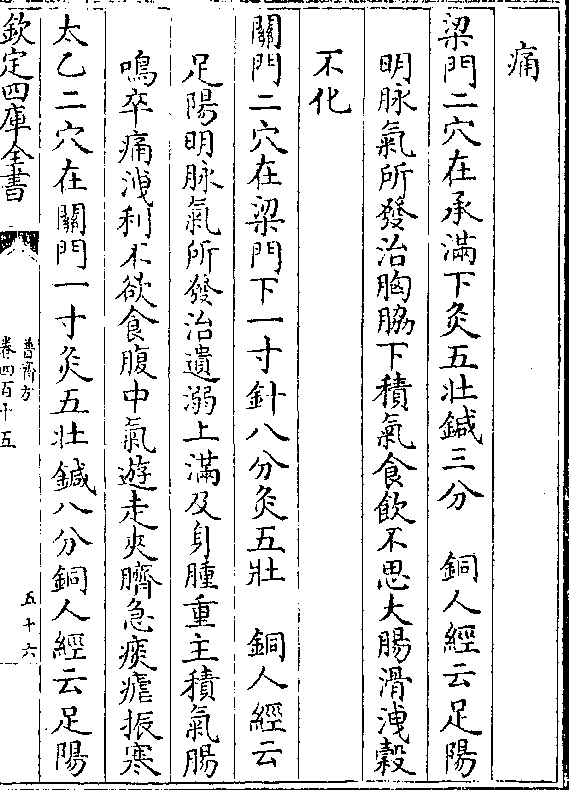 痛
梁門二穴在承滿下灸五壯鍼三分　銅人經云足陽
明脉氣所發治胸脇下積氣食飲不思大腸滑洩穀
不化
關門二穴在梁門下一寸針八分灸五壯　銅人經云
足陽明脉氣所發治遺溺上滿及身腫重主積氣腸
鳴卒痛洩利不欲食腹中氣遊走夾臍急痰瘧振寒
太乙二穴在關門一寸灸五壯鍼八分銅人經云足陽
欽定四庫全書
普濟方
卷四百十五
五十六